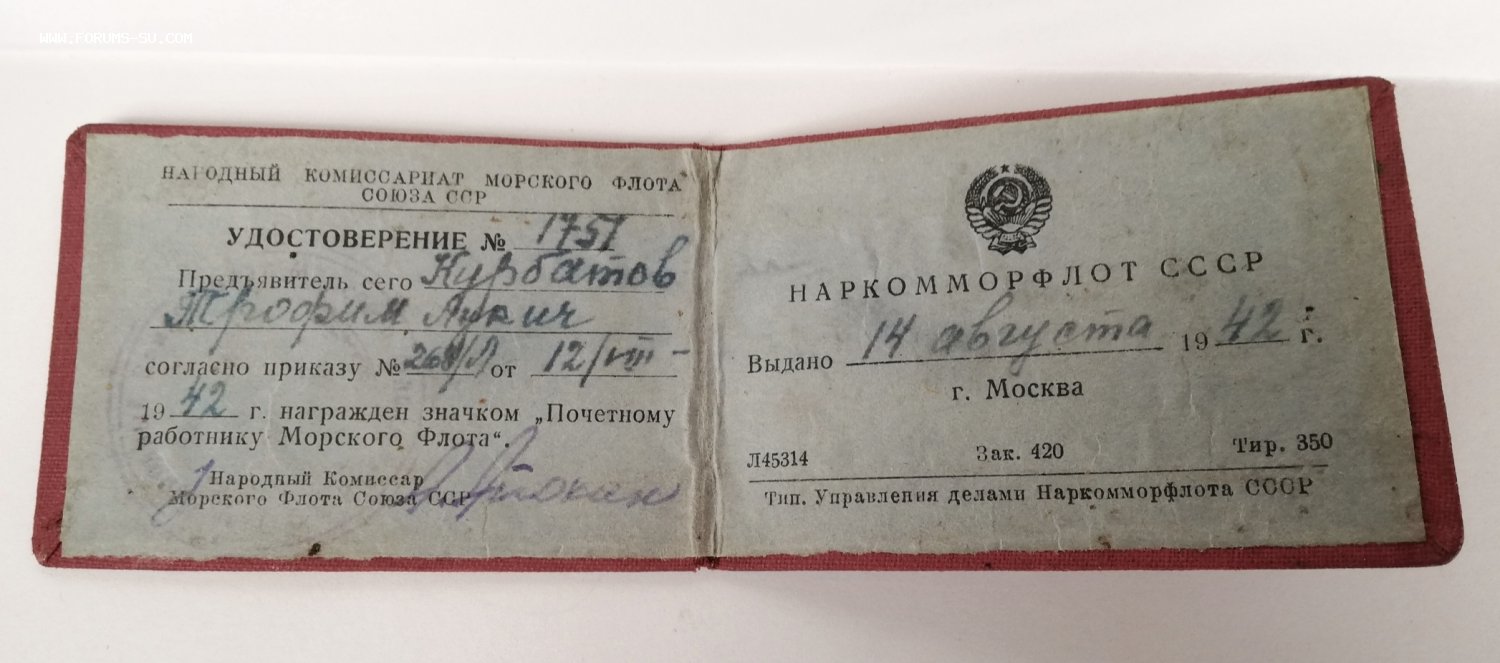 WWW.FORUMS-SU.COM
НАРОДНЫЙ КОМИССАРИАТ МОРСКОГО ФЛОТА
СОЮЗА ССР
УДОСТОВЕРЕНИЕ № 1751
Предъявитель сего Курбатов
Трофим Лукич
согласно приказу № 268/Л от 12/VIII -
1942 г. награжден значком „Почетному
работнику Морского Флота“.
Народный Комиссар
Морского Флота Союза ССР
НАРКОММОРФЛОТ СССР
Выдано 14 августа 1942 г.
г. Москва
Л45314 Зак. 420 Тир. 350
Тип. Управления делами Наркомморфлота СССР